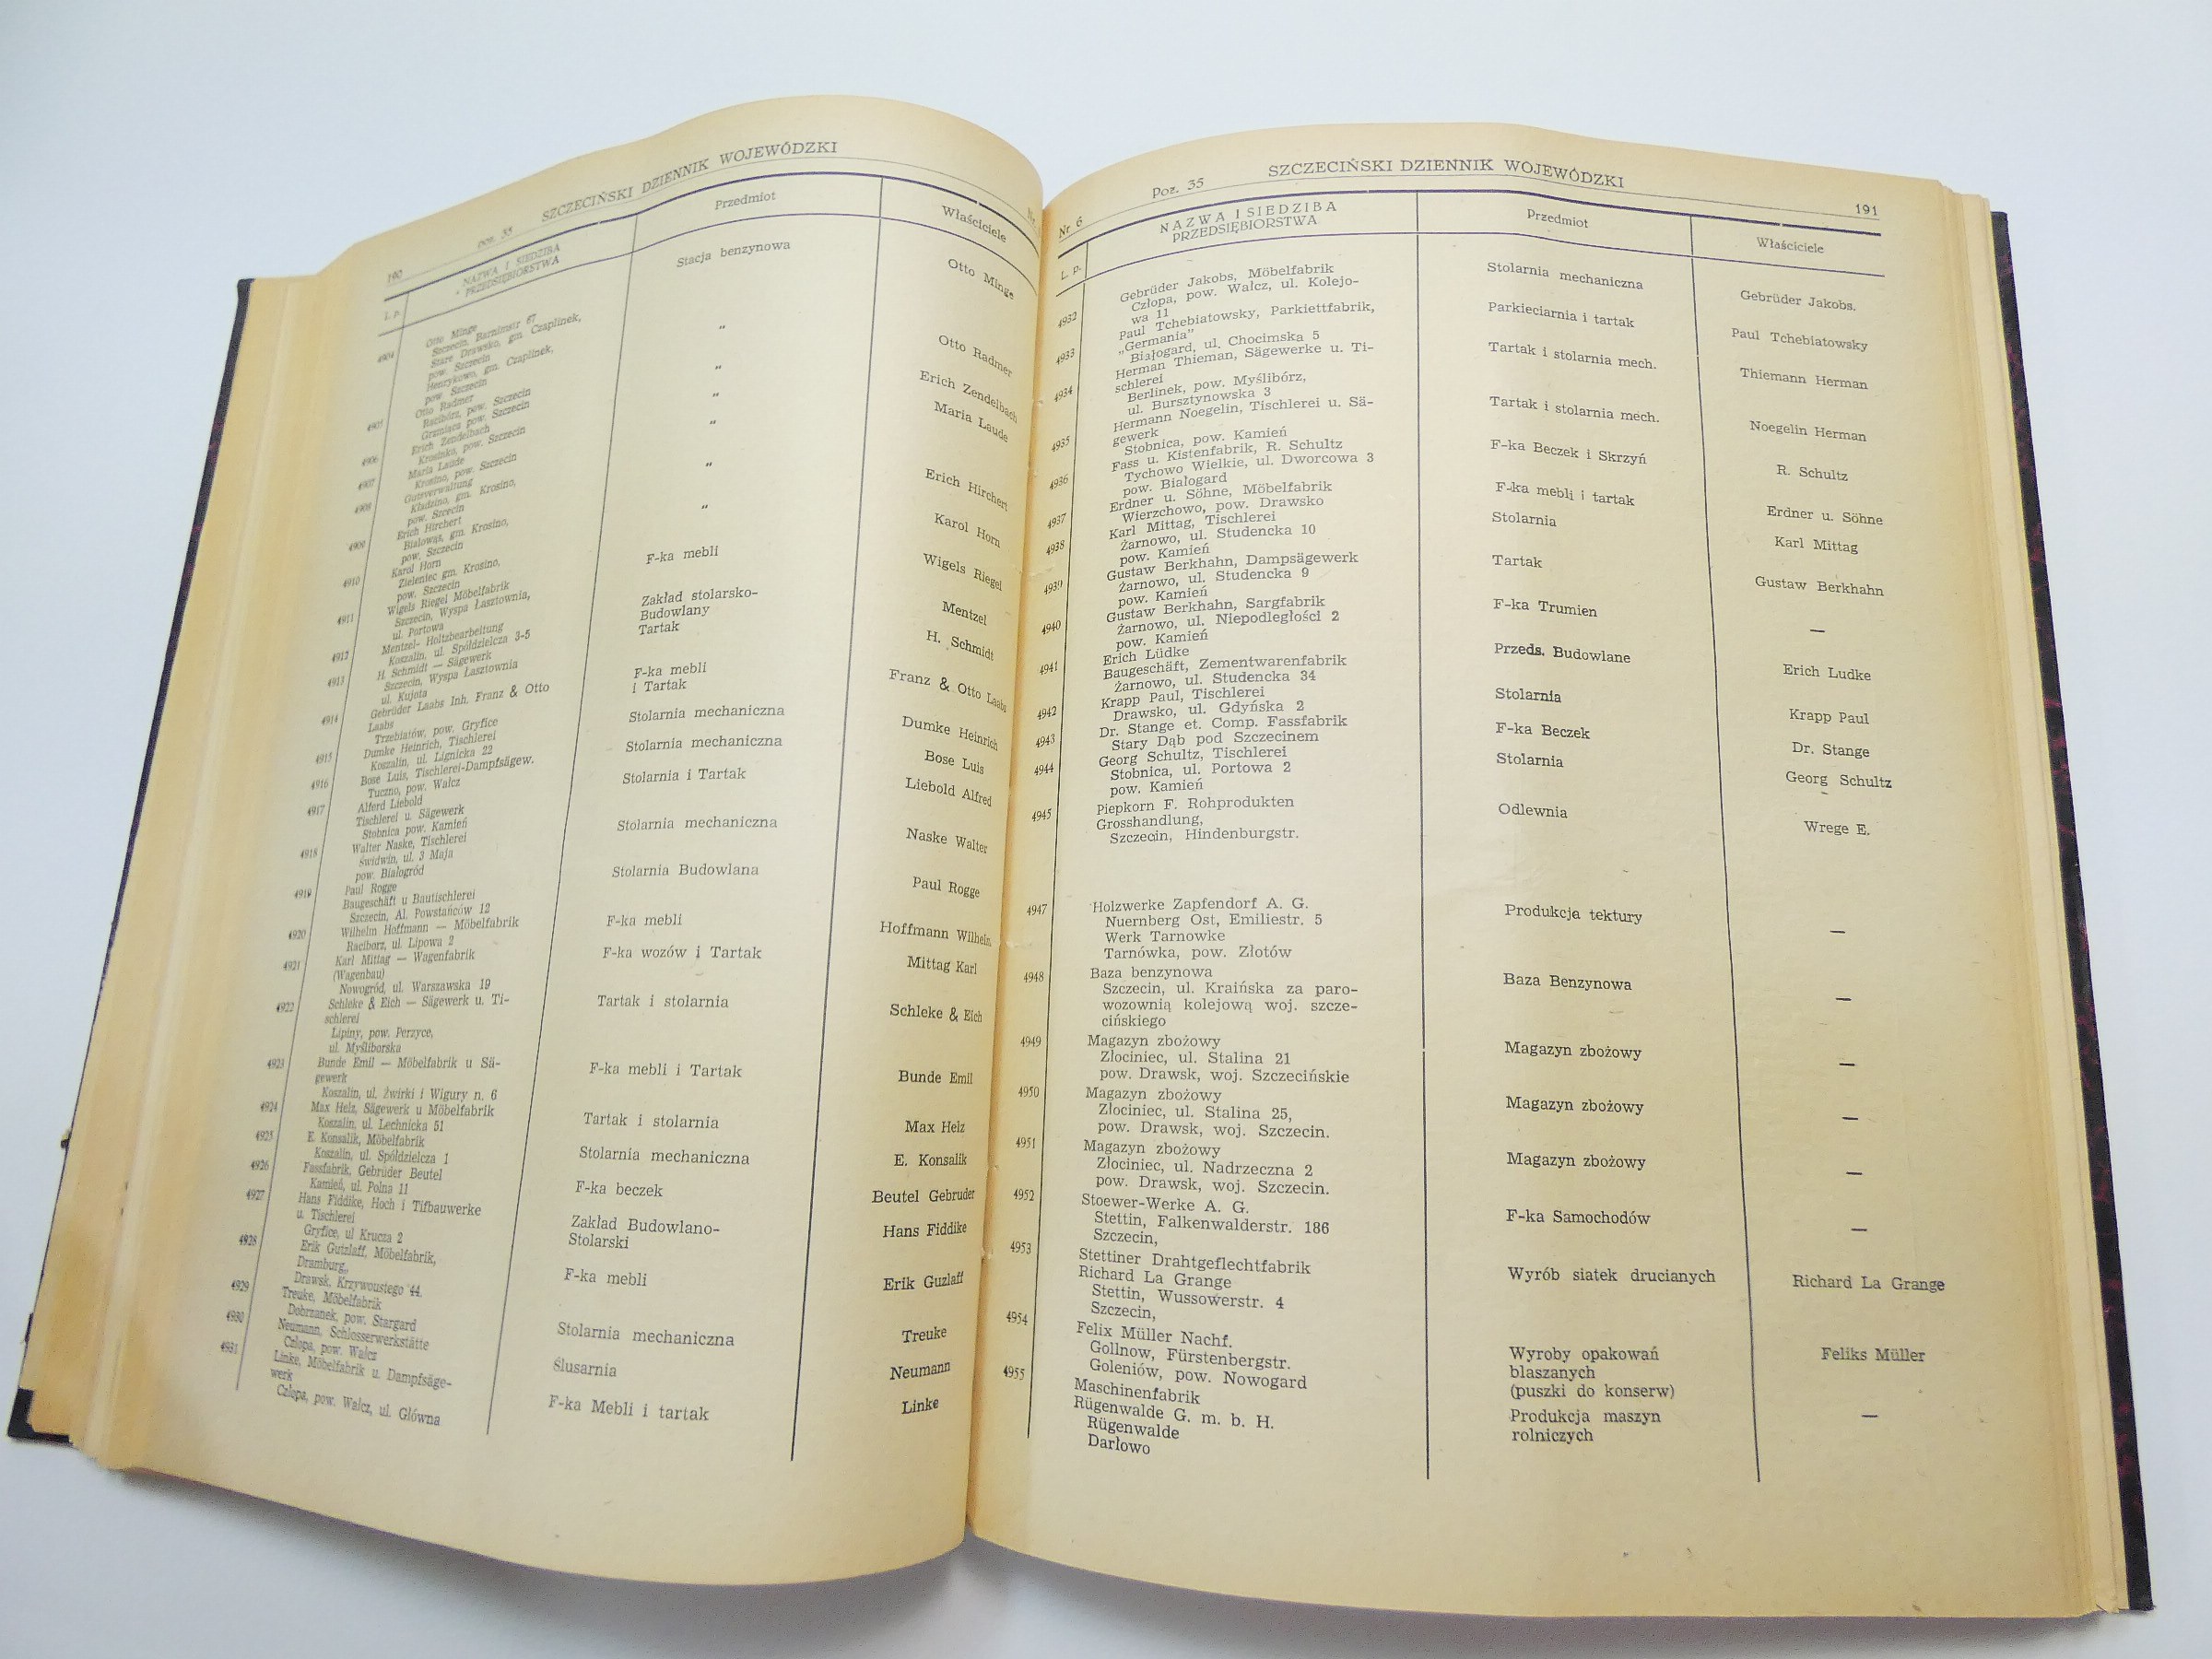 190
poz. 35
SZCZECIŃSKI DZIENNIK WOJEWÓDZKI
Nr.
L. p.
NAZWA I SIEDZIBA
PRZEDSIĘBIORSTWA
Przedmiot
Właściciele
4904
Otto Minge
Szczecin, Barnimstr 67
Stare Drawsko, gm. Czaplinek,
pow. Szczecin
Henrykowo, gm. Czaplinek,
pow. Szczecin
Stacja benzynowa
Otto Minge
4905
Otto Radmer
Racibórz, pow. Szczecin
Gramiąca pow. Szczecin
„
Otto Radmer
4906
Erich Zendelbach
Krosinko, pow. Szczecin
„
Erich Zendelbach
4907
Maria Laude
Krosino, pow. Szczecin
„
Maria Laude
4908
Gutsverwaltung
Kładzino, gm. Krosino,
pow. Szcecin
„
4909
Erich Hirchert
Białowąs, gm. Krosino,
pow. Szczecin
„
Erich Hirchert
4910
Karol Horn
Zieleniec gm. Krosino,
pow. Szczecin
„
Karol Horn
4911
Wigels Riegel Möbelfabrik
Szczecin, Wyspa Łasztownia,
ul. Portowa
F-ka mebli
Wigels Riegel
4912
Mentzel- Holtzbearbeitung
Koszalin, ul. Spółdzielcza 3-5
Zakład stolarsko-
Budowlany
Mentzel
4913
H. Schmidt — Sägewerk
Szczecin, Wyspa Łasztownia
ul. Kujota
Tartak
H. Schmidt
4914
Gebrüder Laabs Inh. Franz & Otto
Laabs
Trzebiatów, pow. Gryfice
F-ka mebli
i Tartak
Franz & Otto Laabs
4915
Dumke Heinrich, Tischlerei
Koszalin, ul. Lignicka 22
Stolarnia mechaniczna
Dumke Heinrich
4916
Bose Luis, Tischlerei-Dampfsägew.
Tuczno, pow. Wałcz
Stolarnia mechaniczna
Bose Luis
4917
Alferd Liebold
Tischlerei u. Sägewerk
Stobnica pow. Kamień
Stolarnia i Tartak
Liebold Alfred
4918
Walter Naske, Tischlerei
Świdwin, ul. 3 Maja
pow. Białogród
Stolarnia mechaniczna
Naske Walter
4919
Paul Rogge
Baugeschäft u Bautischlerei
Szczecin, Al. Powstańców 12
Stolarnia Budowlana
Paul Rogge
4920
Wilhelm Hoffmann — Möbelfabrik
Raciborz, ul. Lipowa 2
F-ka mebli
Hoffmann Wilhelm
4921
Karl Mittag — Wagenfabrik
(Wagenbau)
Nowogród, ul. Warszawska 19
F-ka wozów i Tartak
Mittag Karl
4922
Schleke & Eich — Sägewerk u. Ti-
schlerei
Lipiny, pow. Perzyce,
ul. Myśliborska
Tartak i stolarnia
Schleke & Eich
4923
Bunde Emil — Möbelfabrik u Sä-
gewerk
Koszalin, ul. Żwirki i Wigury n. 6
F-ka mebli i Tartak
Bunde Emil
4924
Max Helz, Sägewerk u Möbelfabrik
Koszalin, ul. Lechnicka 51
Tartak i stolarnia
Max Helz
4925
E. Konsalik, Möbelfabrik
Koszalin, ul. Spółdzielcza 1
Stolarnia mechaniczna
E. Konsalik
4926
Fassfabrik, Gebrüder Beutel
Kamień, ul. Polna 11
F-ka beczek
Beutel Gebruder
4927
Hans Fiddike, Hoch i Tifbauwerke
u. Tischlerei
Gryfice, ul Krucza 2
Zakład Budowlano-
Stolarski
Hans Fiddike
4928
Erik Gutzlaff, Möbelfabrik,
Dramburg,,
Drawsk. Krzywoustego 44.
F-ka mebli
Erik Guzlaff
4929
Treuke, Möbelfabrik
Dobrzanek, pow. Stargard
Stolarnia mechaniczna
Treuke
4930
Neumann, Schlosserwerkstätte
Człopa, pow. Wałcz
Ślusarnia
Neumann
4931
Linke, Möbelfabrik u. Dampfsäge-
werk
Człopa, pow. Wałcz, ul. Główna
F-ka Mebli i tartak
Linke
Nr. 6
Poz. 35
SZCZECIŃSKI DZIENNIK WOJEWÓDZKI
191
L. p.
NAZWA I SIEDZIBA
PRZEDSIĘBIORSTWA
Przedmiot
Właściciele
4932
Gebrüder Jakobs, Möbelfabrik
Człopa, pow. Wałcz, ul. Kolejo-
wa 11
Stolarnia mechaniczna
Gebrüder Jakobs.
4933
Paul Tchebiatowsky, Parkiettfabrik,
„Germania"
Białogard, ul. Chocimska 5
Parkieciarnia i tartak
Paul Tchebiatowsky
4934
Herman Thieman, Sägewerke u. Ti-
schlerei
Berlinek, pow. Myślibórz,
ul. Bursztynowska 3
Tartak i stolarnia mech.
Thiemann Herman
4935
Hermann Noegelin, Tischlerei u. Sä-
gewerk
Stobnica, pow. Kamień
Tartak i stolarnia mech.
Noegelin Herman
4936
Fass u. Kistenfabrik, R. Schultz
Tychowo Wielkie, ul. Dworcowa 3
pow. Białogard
F-ka Beczek i Skrzyń
R. Schultz
4937
Erdner u. Söhne, Möbelfabrik
Wierzchowo, pow. Drawsko
F-ka mebli i tartak
Erdner u. Söhne
4938
Karl Mittag, Tischlerei
Żarnowo, ul. Studencka 10
pow. Kamień
Stolarnia
Karl Mittag
4939
Gustaw Berkhahn, Dampsägewerk
Żarnowo, ul. Studencka 9
pow. Kamień
Tartak
Gustaw Berkhahn
4940
Gustaw Berkhahn, Sargfabrik
Żarnowo, ul. Niepodległości 2
pow. Kamień
F-ka Trumien
—
4941
Erich Lüdke
Baugeschäft, Zementwarenfabrik
Żarnowo, ul. Studencka 34
Przeds. Budowlane
Erich Ludke
4942
Krapp Paul, Tischlerei
Drawsko, ul. Gdyńska 2
Stolarnia
Krapp Paul
4943
Dr. Stange et. Comp. Fassfabrik
Stary Dąb pod Szczecinem
F-ka Beczek
Dr. Stange
4944
Georg Schultz, Tischlerei
Stobnica, ul. Portowa 2
pow. Kamień
Stolarnia
Georg Schultz
4945
Piepkorn F. Rohprodukten
Grosshandlung,
Szczecin, Hindenburgstr.
Odlewnia
Wrege E.
4947
Holzwerke Zapfendorf A. G.
Nuernberg Ost, Emiliestr. 5
Werk Tarnowke
Tarnówka, pow. Złotów
Produkcja tektury
—
4948
Baza benzynowa
Szczecin, ul. Kraińska za paro-
wozownią kolejową woj. szcze-
cińskiego
Baza Benzynowa
—
4949
Magazyn zbożowy
Złociniec, ul. Stalina 21
pow. Drawsk, woj. Szczecińskie
Magazyn zbożowy
—
4950
Magazyn zbożowy
Złociniec, ul. Stalina 25,
pow. Drawsk, woj. Szczecin.
Magazyn zbożowy
—
4951
Magazyn zbożowy
Złociniec, ul. Nadrzeczna 2
pow. Drawsk, woj. Szczecin.
Magazyn zbożowy
—
4952
Stoewer-Werke A. G.
Stettin, Falkenwalderstr. 186
Szczecin,
F-ka Samochodów
—
4953
Stettiner Drahtgeflechtfabrik
Richard La Grange
Stettin, Wussowerstr. 4
Szczecin,
Wyrób siatek drucianych
Richard La Grange
4954
Felix Müller Nachf.
Gollnow, Fürstenbergstr.
Goleniów, pow. Nowogard
Wyroby opakowań
blaszanych
(puszki do konserw)
Feliks Müller
4955
Maschinenfabrik
Rügenwalde G. m. b. H.
Rügenwalde
Darłowo
Produkcja maszyn
rolniczych
—